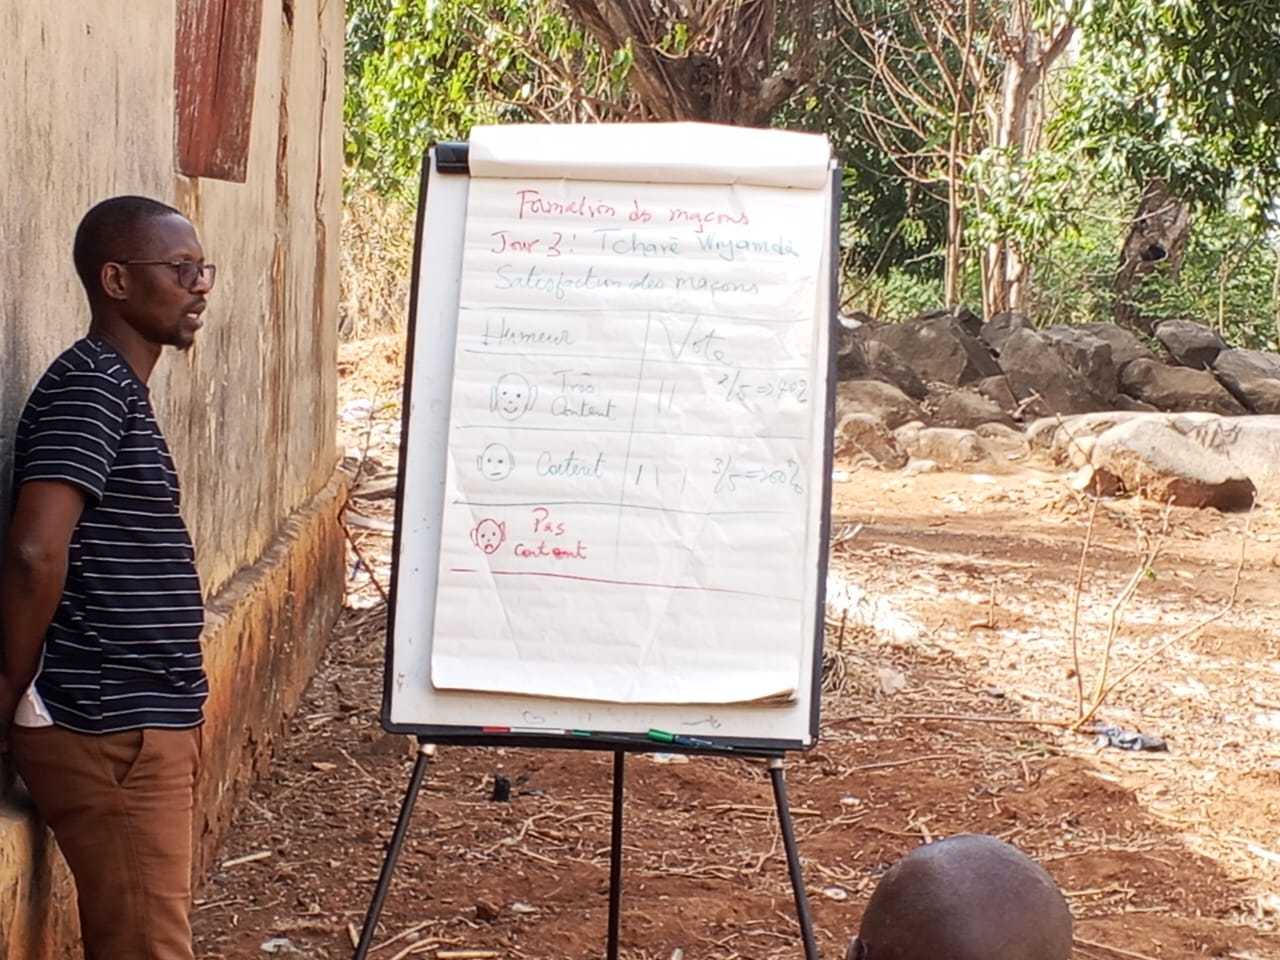 Formation des maçons
Jour 3: Tcharè Wiyamdè
Satisfaction des maçons
Humeur Vote
Très Content 2/5 => 40%
Content 3/5 => 60%
Pas content